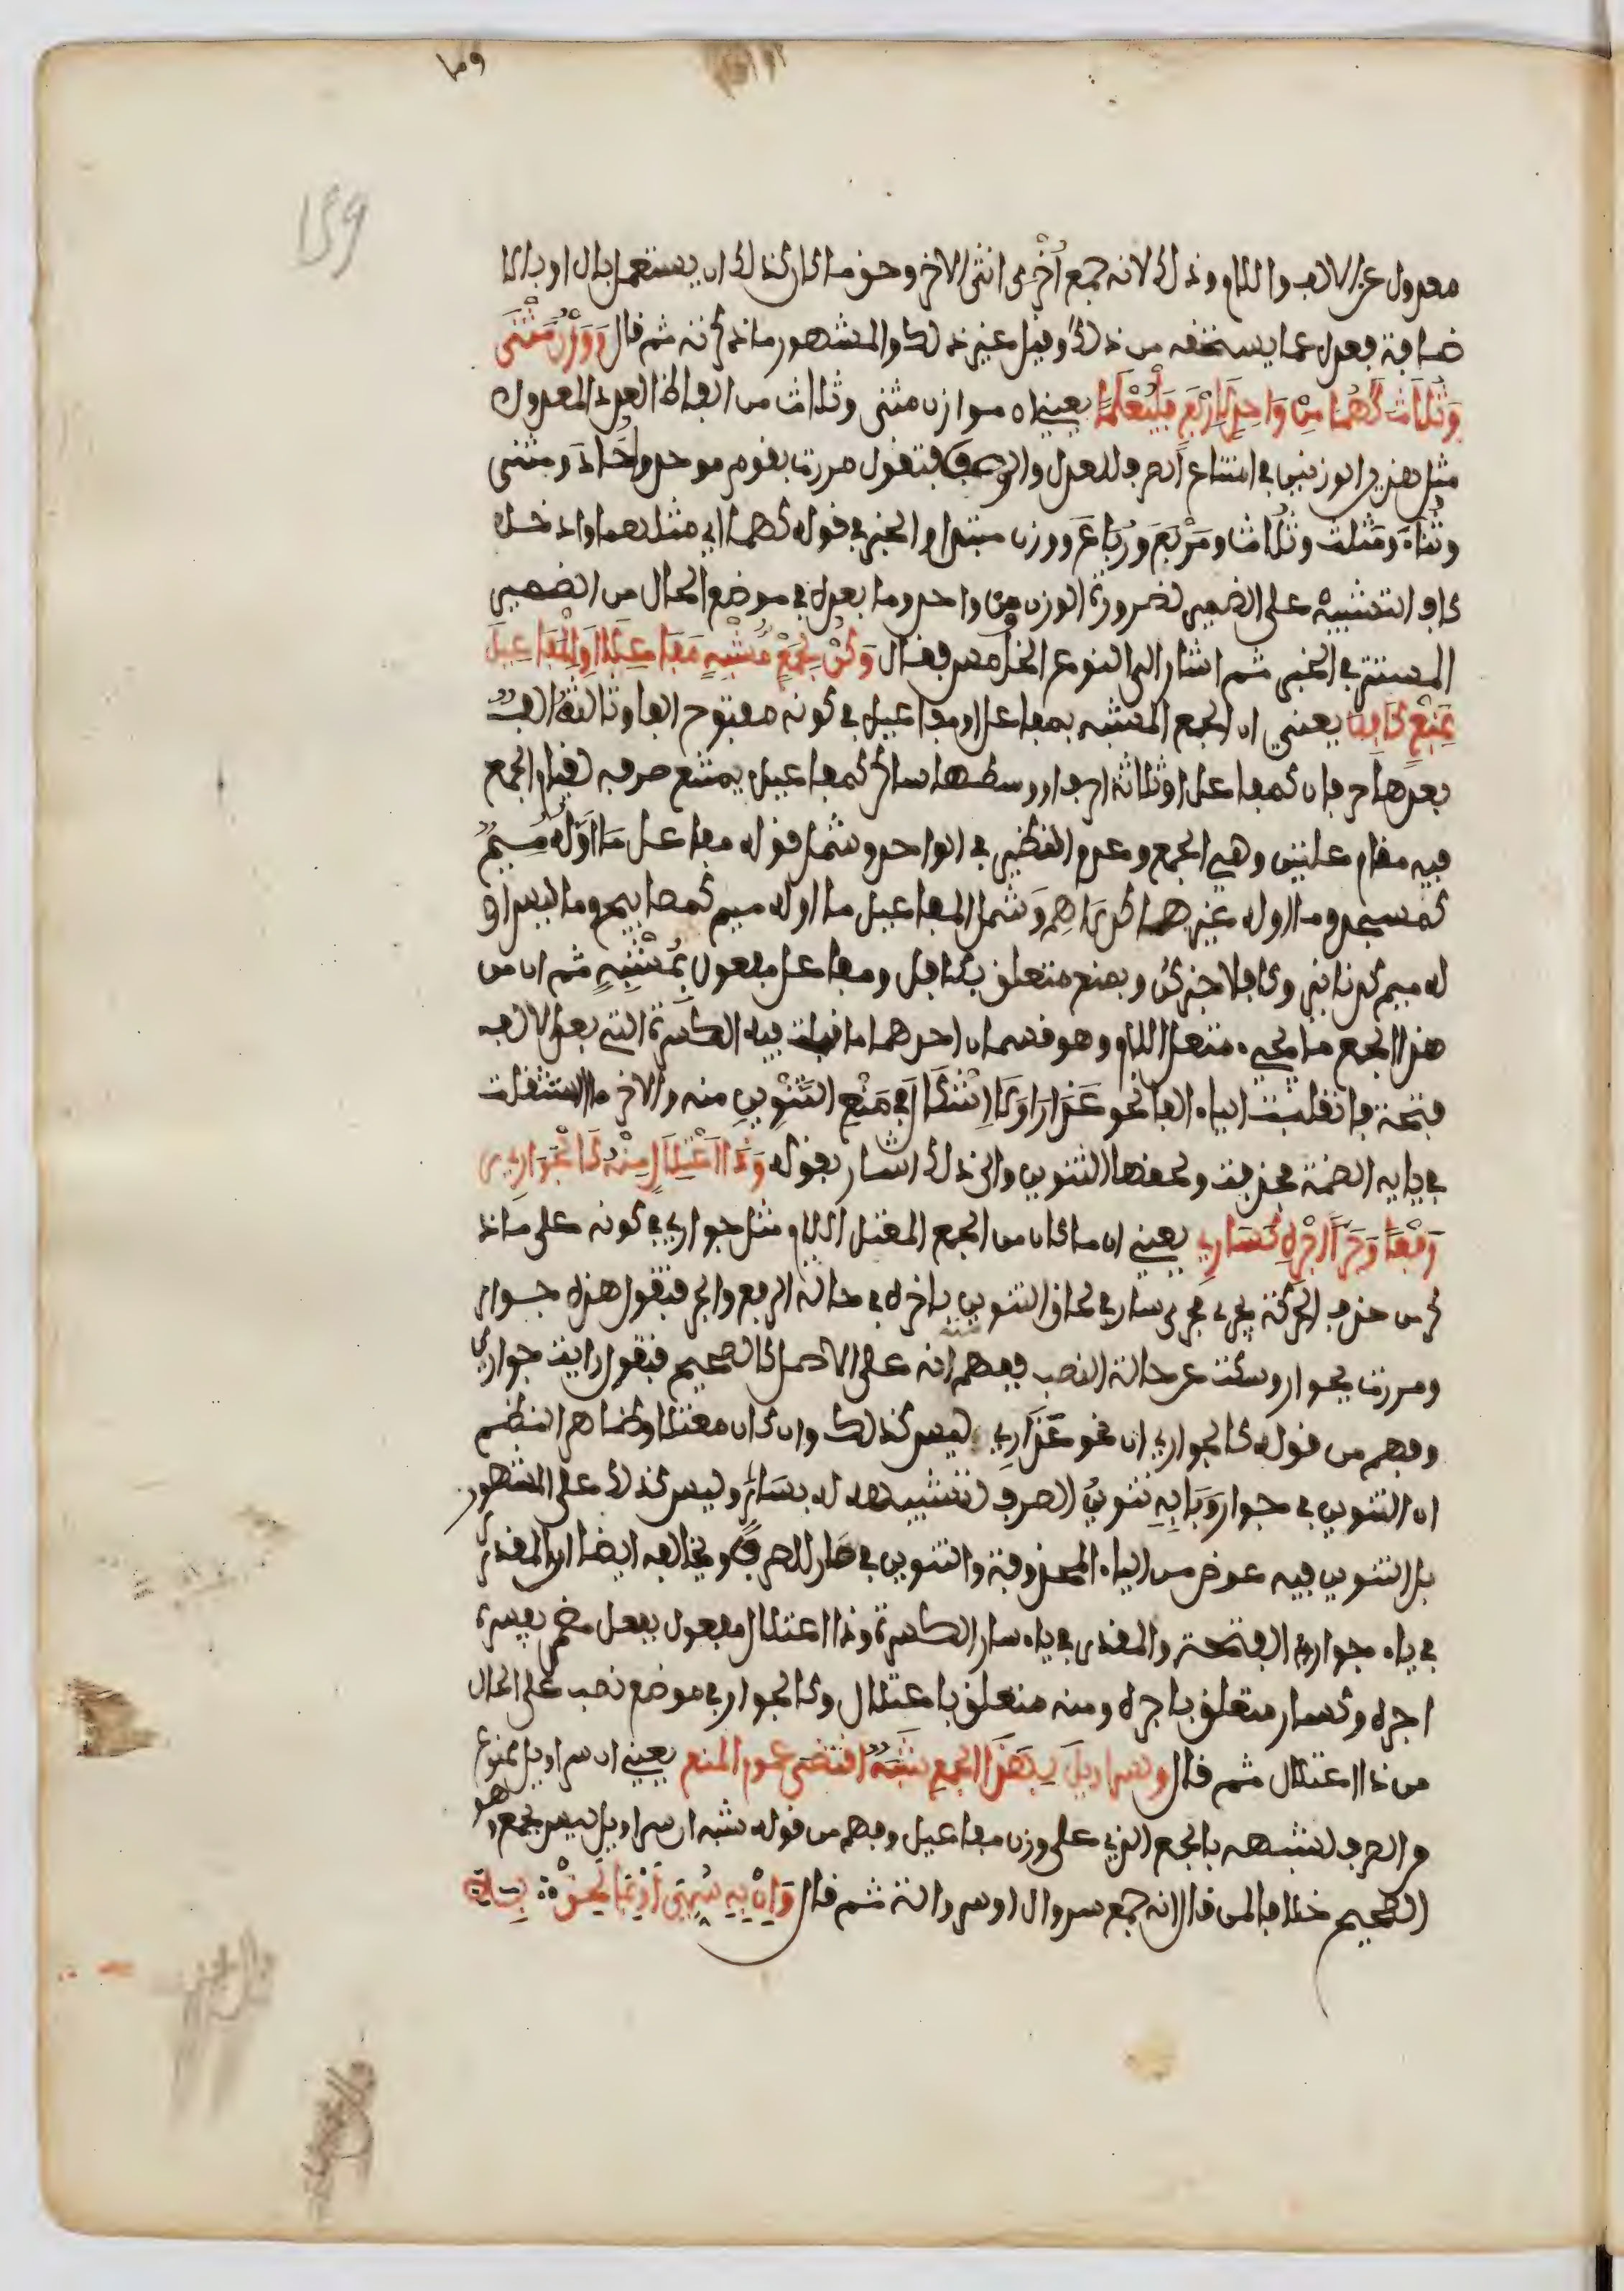 وما
159
معدول عن الالف واللام وذلك لانه جمع أُخْرى انثى الاخر وحق ما كان كذلك ان يستعمل بال او بالا
ضافة فعدل عما يستحقه من ذلك وقيل غير ذلك والمشهور ما ذكرته ثم قال وَوَزْنُ مَثْنَى
وَثُلَاثَ كَهُمَا مِنْ وَاحِدٍ لِأَرْبَعٍ فَلْيُعْلَمَا يعني ان موازن مثنى وثلاث من الفاظ العدد المعدول
مثل هذين الوزنين في امتناع الصرف للعدل والوصف فتقول مررت بقوم موحد وأحاد ومثنى
وثُناءَ ومَثلث وثُلاث ومَرْبَعَ ورُبَاعَ ووزن مبتدا والخبر في قوله كهما اي مثلهما وادخل
كاف التشبيه على الضمير لضرورة الوزن ومن واحد وما بعده في موضع الحال من الضمير
المستتر في الخبر ثم اشار الى النوع الخامس فقال وَكُنْ لِجَمْعٍ مُشْبِهٍ مَفَاعِلَا أَوِ الْمَفَاعِيلَ
بِمَنْعٍ كَافِلَا يعني ان الجمع المشبه بمفاعل او مفاعيل في كونه مفتوح الفا وثالثه الف
بعدها حرفان كمفاعل او ثلاثة احرف اوسطها ساكن كمفاعيل يمتنع صرفه لقيام الجمع
فيه مقام علتين وهي الجمع وعدم النظير في الواحد وشمل قوله مفاعل مَا اوَّلُهُ مِيمٌ
كمسجد وما اوله غيرها كدراهم وشمل المفاعيل ما اوله ميم كمصابيح وما ليس او
له ميم كدنانير وكافلا خبر كن وبمنع متعلق بكافل ومفاعل مفعول بمُشْبِهٍ ثم ان من
هذا الجمع ما يجيء معتل اللام وهو قسمان احدهما ما قلبت فيه الكسرة التي بعد الالف
فتحة فانقلبت الياء الفا نحو عَذَارَا وَلَا إشْكَالَ فِي مَنْعِ التَّنْوِينِ منه والاخر ما استثقلت
في يايه الضمة فحذفت ولحقها التنوين والى ذلك اشار بقوله وَذَا اعْتِلَالٍ مِنْهُ كَالْجَوَارِي
رَفْعًا وَجَرًّا أَجْرِهِ كَسَارِي يعني ان ما كان من الجمع المعتل اللام مثل جواري في كونه على ما ذ
كر من حذف الحركة يجري مجرى ساري في لحاق التنوين باخره في حالة الرفع والجر فتقول هذه جوار
ومررت بجوار وسكت عن حالة النصب ففهم انه على الاصل كالصحيح فتقول رايت جواري
وفهم من قوله كالجواري ان نحو عَذَارِي ليس كذلك وان كان معتلا وظاهر النظم
ان التنوين في جوار وَبَابِهِ تنوينُ الصرف لتشبيهه له بسارٍ وليس كذلك على المشهور
بل التنوين فيه عوض من الياء المحذوفة والتنوين في سار للصرف ويخالفه ايضا ان المقدر
في ياء جواري الفتحة والمقدر في ياء سار الكسرة وذا اعتلال مفعول بفعل مضمر يفسره
اجره وكسار متعلق باجره ومنه متعلق باعتلال وكالجوار في موضع نصب على الحال
من ذا اعتلال ثم قال ولسراويلَ بِهَذَا الجمع شَبَهٌ اقتضى عموم المنع يعني ان سراويل ممنوع
من الصرف لشبهه بالجمع الذي على وزن مفاعيل وفهم من قوله شبه ان سراويل ليس بجمع وهو
الصحيح خلافا لمن قال انه جمع سروال او سروالة ثم قال وَإِنْ بِهِ سُمِّيَ أَوْ بِمَا لَحِقْ بِهِ